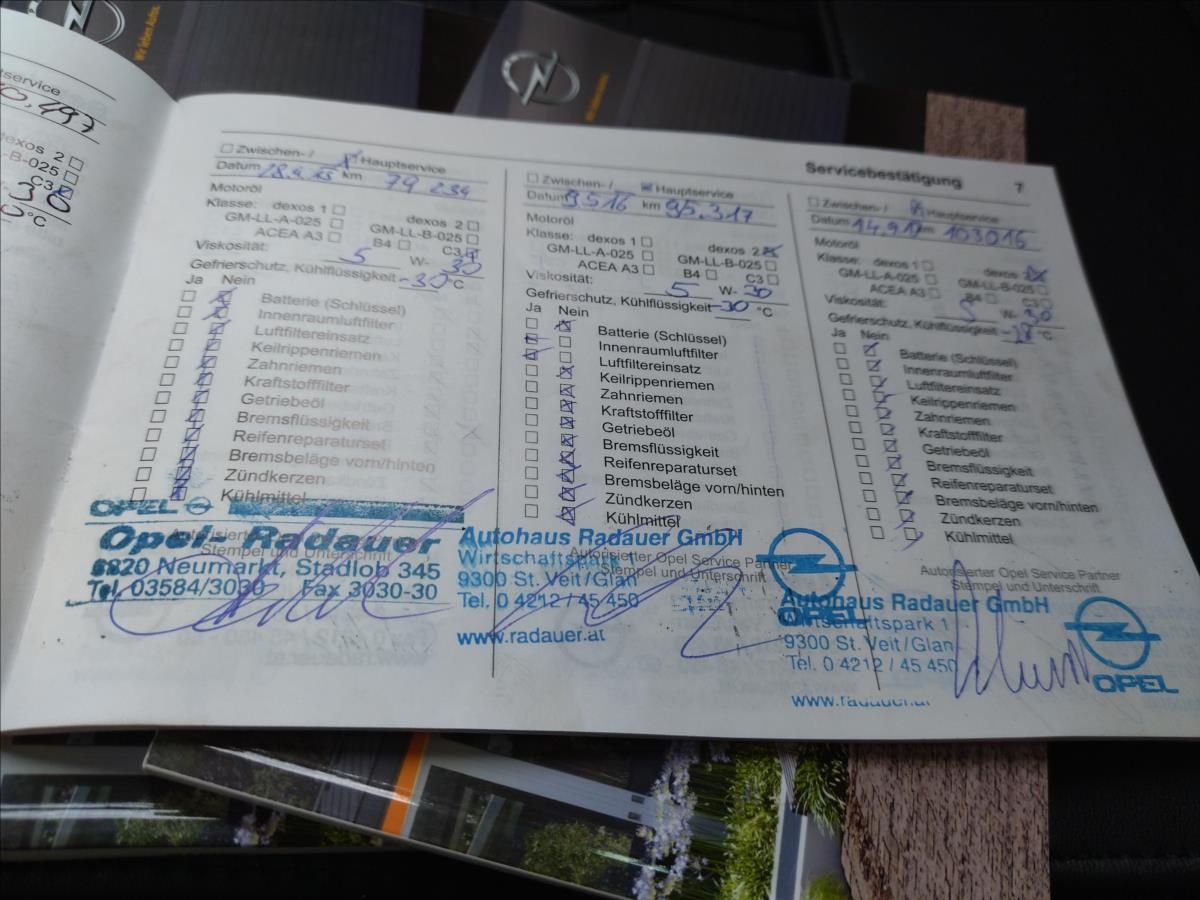 Wir leben Autos.
service
0,497
dexos 2
LL-B-025
C3
30
°C
Servicebestätigung 7
Zwischen- / Hauptservice
Datum km 79 234
Motoröl
Klasse: dexos 1 dexos 2
GM-LL-A-025 GM-LL-B-025
ACEA A3 B4 C3
Viskosität: 5 W- 30
Gefrierschutz, Kühlflüssigkeit -30 °C
Ja Nein
Batterie (Schlüssel)
Innenraumluftfilter
Luftfiltereinsatz
Keilrippenriemen
Zahnriemen
Kraftstofffilter
Getriebeöl
Bremsflüssigkeit
Reifenreparaturset
Bremsbeläge vorn/hinten
Zündkerzen
Kühlmittel
OPEL
Opel Radauer
Autorisierter Opel Service Partner
Stempel und Unterschrift
8820 Neumarkt, Stadlob 345
Tel. 03584/3030 Fax 3030-30
Zwischen- / Hauptservice
Datum 9.5.16 km 95.317
Motoröl
Klasse: dexos 1 dexos 2
GM-LL-A-025 GM-LL-B-025
ACEA A3 B4 C3
Viskosität: 5 W- 30
Gefrierschutz, Kühlflüssigkeit -30 °C
Ja Nein
Batterie (Schlüssel)
Innenraumluftfilter
Luftfiltereinsatz
Keilrippenriemen
Zahnriemen
Kraftstofffilter
Getriebeöl
Bremsflüssigkeit
Reifenreparaturset
Bremsbeläge vorn/hinten
Zündkerzen
Kühlmittel
Autohaus Radauer GmbH
Autorisierter Opel Service Partner
Stempel und Unterschrift
Wirtschaftspark
9300 St. Veit/Glan
Tel. 0 4212 / 45 450
www.radauer.at
OPEL
Zwischen- / Hauptservice
Datum 14.9.17 km 103016
Motoröl
Klasse: dexos 1 dexos 2
GM-LL-A-025 GM-LL-B-025
ACEA A3 B4 C3
Viskosität: 5 W- 30
Gefrierschutz, Kühlflüssigkeit °C
Ja Nein
Batterie (Schlüssel)
Innenraumluftfilter
Luftfiltereinsatz
Keilrippenriemen
Zahnriemen
Kraftstofffilter
Getriebeöl
Bremsflüssigkeit
Reifenreparaturset
Bremsbeläge vorn/hinten
Zündkerzen
Kühlmittel
Autorisierter Opel Service Partner
Stempel und Unterschrift
Autohaus Radauer GmbH
Wirtschaftspark 1
9300 St. Veit/Glan
Tel. 0 4212 / 45 450
www.radauer.at
OPEL